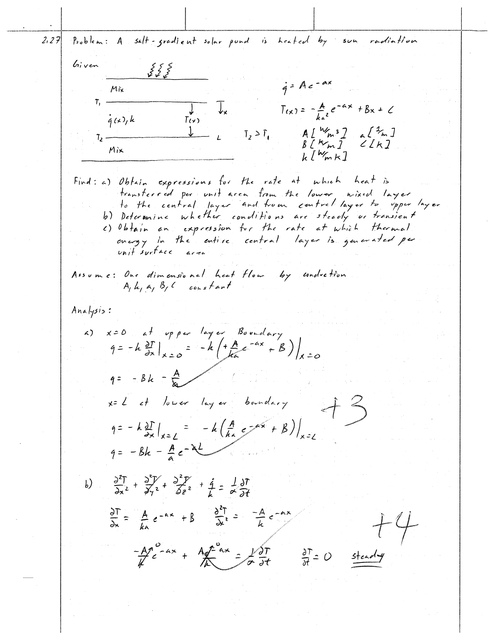 2.27 Problem: A salt-gradient solar pond is heated by sun radiation
Given
Mix
T₁
x
q̇(x), k T(x)
T₂ L T₂ > T₁
Mix
q̇ = A e^-ax
T(x) = -A/ka² e^-ax + Bx + C
A [W/m³] a [1/m]
B [K/m] C [K]
k [W/mK]
Find: a) Obtain expressions for the rate at which heat is
transferred per unit area from the lower mixed layer
to the central layer and from central layer to upper layer
b) Determine whether conditions are steady or transient
c) Obtain an expression for the rate at which thermal
energy in the entire central layer is generated per
unit surface area
Assume: One dimensional heat flow by conduction
A, k, a, B, C constant
Analysis:
a) x=0 at upper layer Boundary
q = -k ∂T/∂x |x=0 = -k (+A/ka e^-ax + B) |x=0
q = -Bk - A/a
x=L at lower layer boundary
+3
q = -k ∂T/∂x |x=L = -k (A/ka e^-ax + B) |x=L
q = -Bk - A/a e^-aL
b) ∂²T/∂x² + ∂²T/∂y² + ∂²T/∂z² + q̇/k = 1/α ∂T/∂t
∂T/∂x = A/ka e^-ax + B ∂²T/∂x² = -A/k e^-ax
+4
-A/k e^-ax + A/k e^-ax = 1/α ∂T/∂t ∂T/∂t = 0 steady